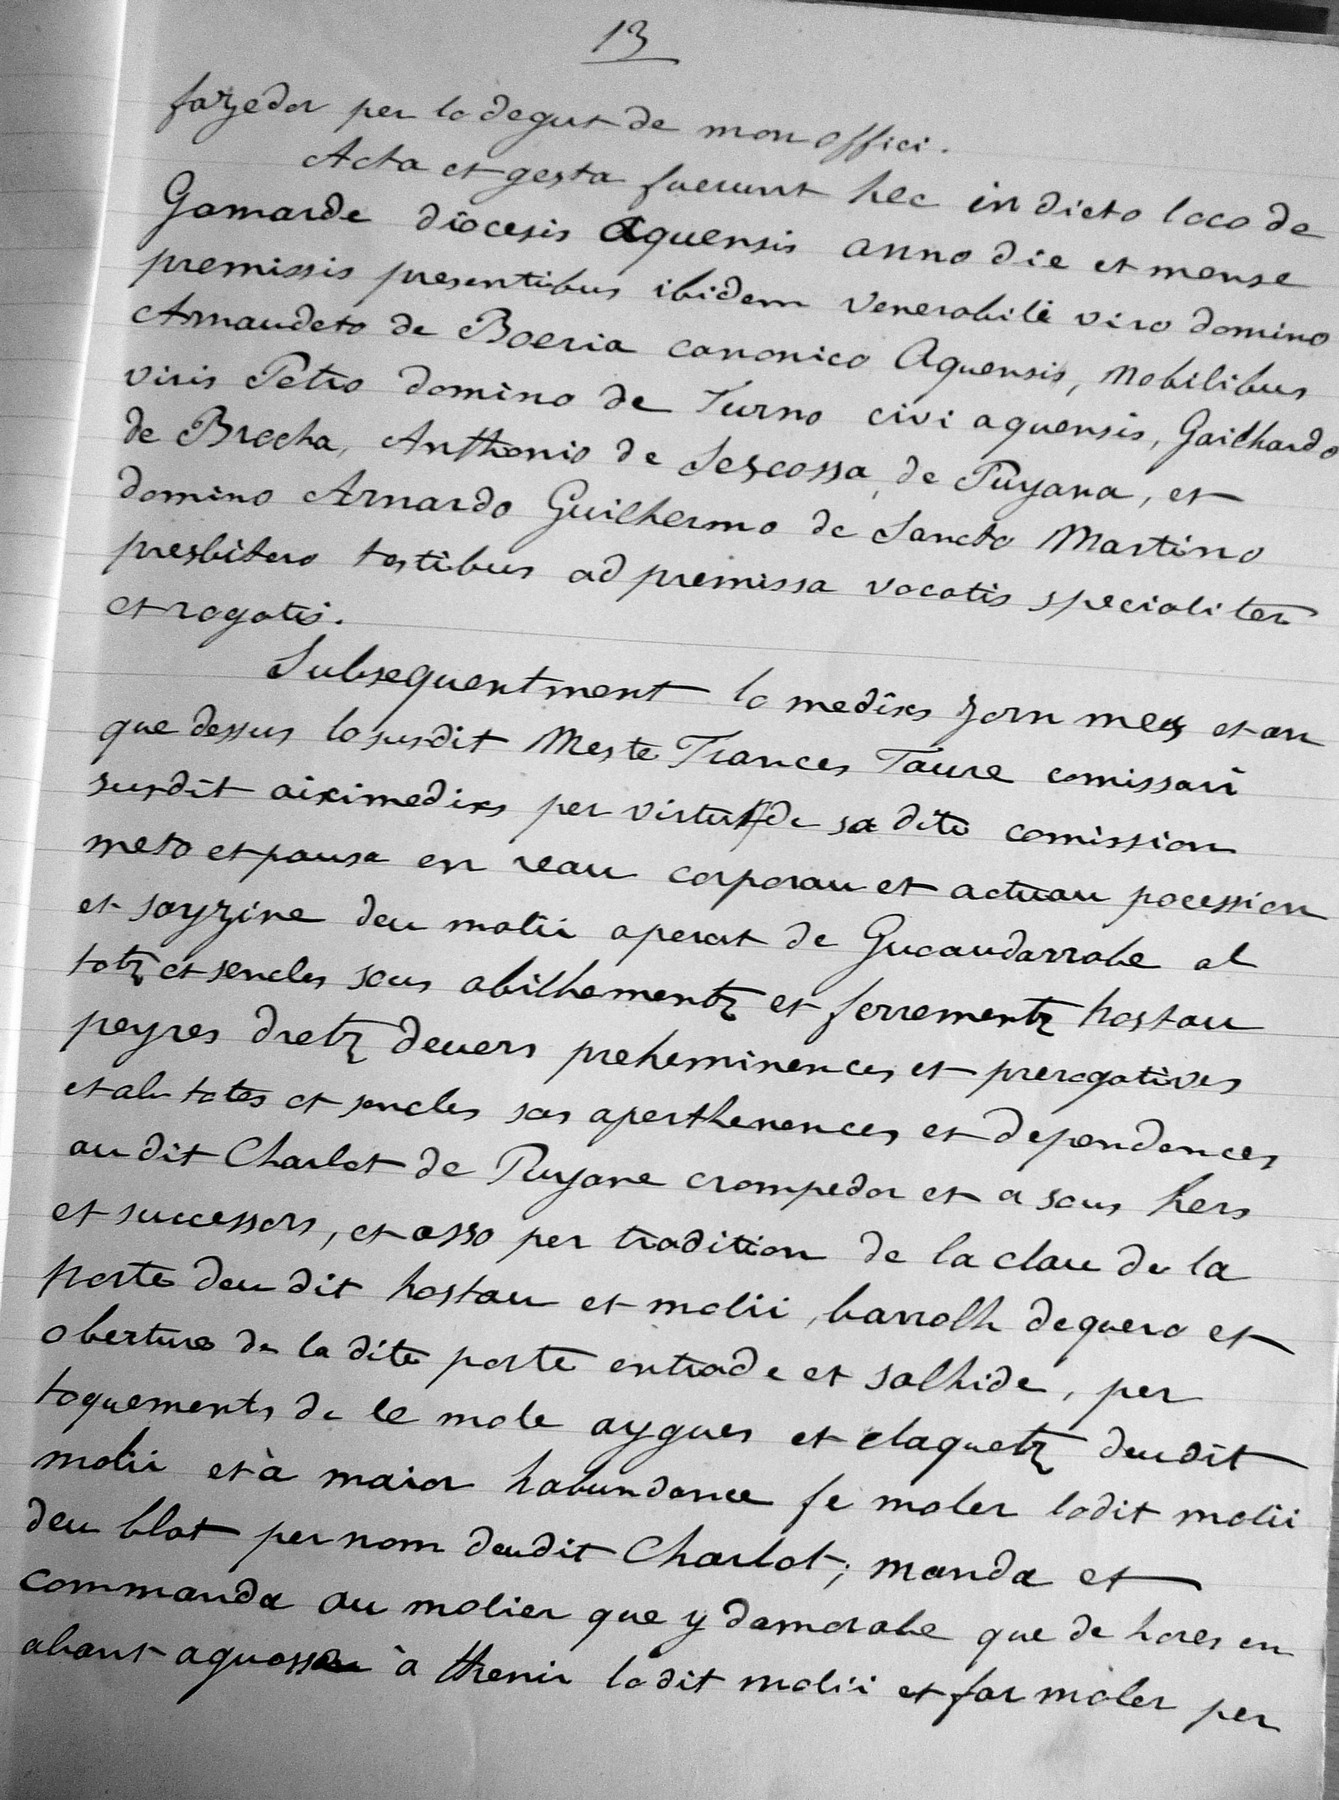 13
fazedor per lo degut de mon offici.
Acta et gesta fuerunt hec in dicto loco de
Gamarde diocesis Aquensis anno die et mense
premissis presentibus ibidem venerabili viro domino
Arnaudeto de Boeria canonico Aquensis, Nobilibus
viris Petro domino de Turno civi aquensis, Gailhardo
de Brocha, Anthonio de Sescossa, de Puyana, et
domino Arnardo Guilhermo de Sancto Martino
presbitero testibus ad premissa vocatis specialiter
et rogatis.
Subsequentment lo medixs jorn mes et an
que dessus lo susdit Meste Frances Faure comissari
susdit aiximedixs per virtut de sa dite comission
meto et pausa en reau corporau et actuau pocession
et sayzine deu molii aperat de Gucaudarrabe ab
totz et sencles sous abilhementz et ferrementz hostau
peyres dretz devers preheminences et prerogatives
et ab totes et sencles sas aperthenences et dependences
au dit Charlot de Puyane crompedor et a sous hers
et successors, et asso per tradition de la clau de la
porte deu dit hostau et molii, barrolh dequero et
oberture de la dite porte entrade et salhide, per
toquements de le mole aygues et claquetz deudit
molii et à maior habundance fe moler lodit molii
deu blat per nom deudit Charlot; manda et
commanda au molier que y damorabe que de hores en
abant aguosse à thenir lodit molii et far moler per